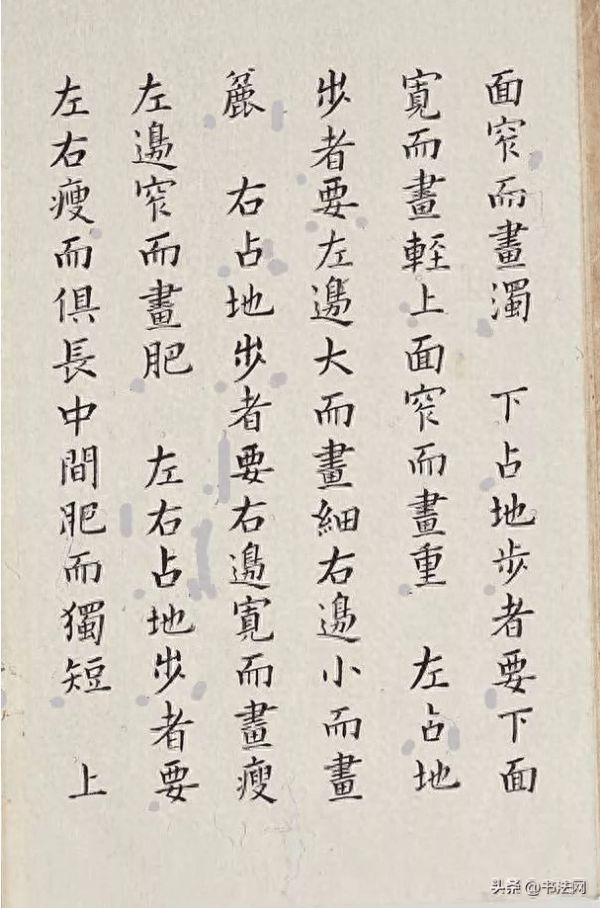 面窄而畫濁　下占地步者要下面
寬而畫輕上面窄而畫重　左占地
步者要左邊大而畫細右邊小而畫
麄　右占地步者要右邊寬而畫瘦
左邊窄而畫肥　左右占地步者要
左右瘦而俱長中間肥而獨短　上
头条 @书法网